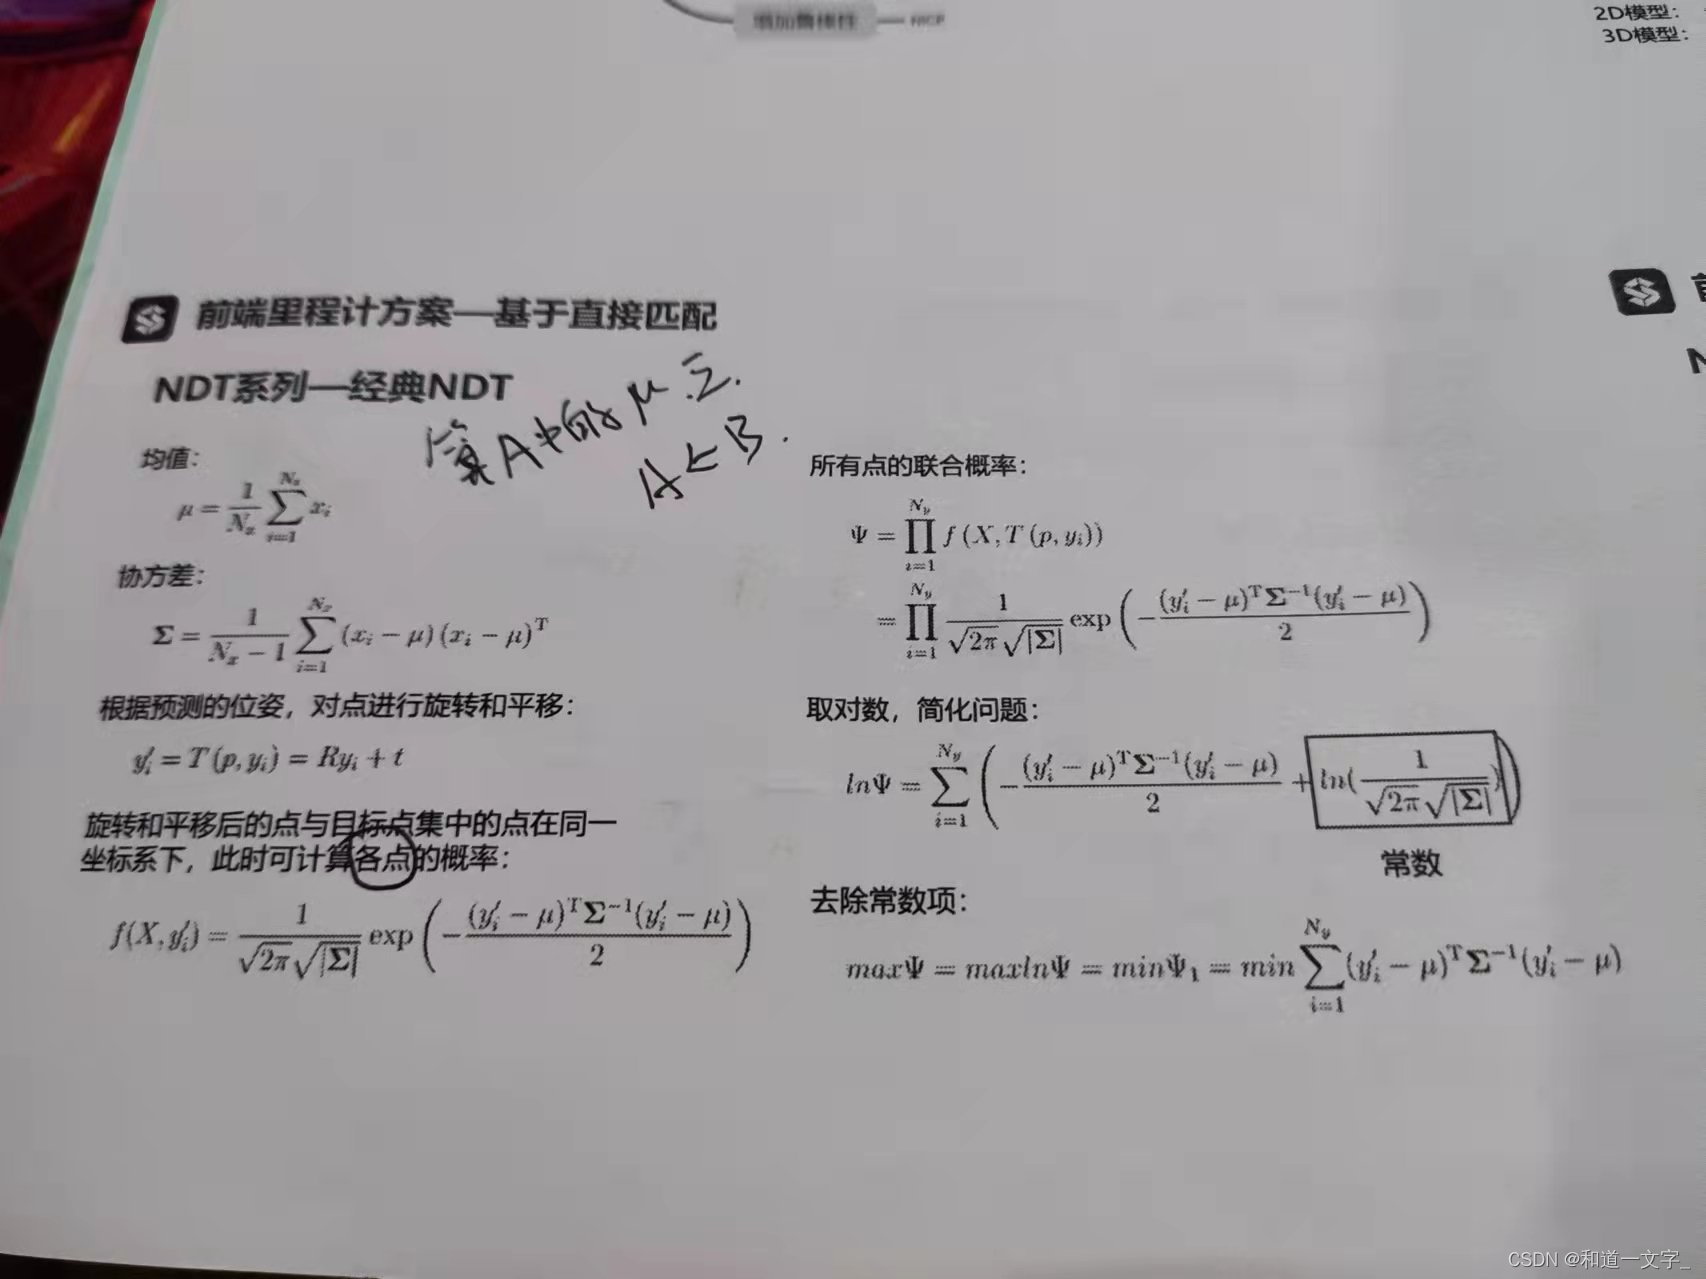 增加鲁棒性 NICP
2D模型:
3D模型:
前端里程计方案—基于直接匹配
NDT系列—经典NDT
算A中的μ.Σ.
A ← B.
均值:
μ = \frac{1}{N_x} \sum_{i=1}^{N_x} x_i
协方差:
Σ = \frac{1}{N_x - 1} \sum_{i=1}^{N_x} (x_i - μ)(x_i - μ)^T
根据预测的位姿，对点进行旋转和平移:
y_i' = T(p, y_i) = Ry_i + t
旋转和平移后的点与目标点集中的点在同一
坐标系下，此时可计算各点的概率:
f(X, y_i') = \frac{1}{\sqrt{2π}\sqrt{|Σ|}} exp(-\frac{(y_i' - μ)^T Σ^{-1}(y_i' - μ)}{2})
所有点的联合概率:
Ψ = \prod_{i=1}^{N_y} f(X, T(p, y_i))
= \prod_{i=1}^{N_y} \frac{1}{\sqrt{2π}\sqrt{|Σ|}} exp(-\frac{(y_i' - μ)^T Σ^{-1}(y_i' - μ)}{2})
取对数，简化问题:
lnΨ = \sum_{i=1}^{N_y} (-\frac{(y_i' - μ)^T Σ^{-1}(y_i' - μ)}{2} + ln(\frac{1}{\sqrt{2π}\sqrt{|Σ|}}))
常数
去除常数项:
maxΨ = maxlnΨ = minΨ_1 = min \sum_{i=1}^{N_y} (y_i' - μ)^T Σ^{-1}(y_i' - μ)
CSDN @和道一文字_